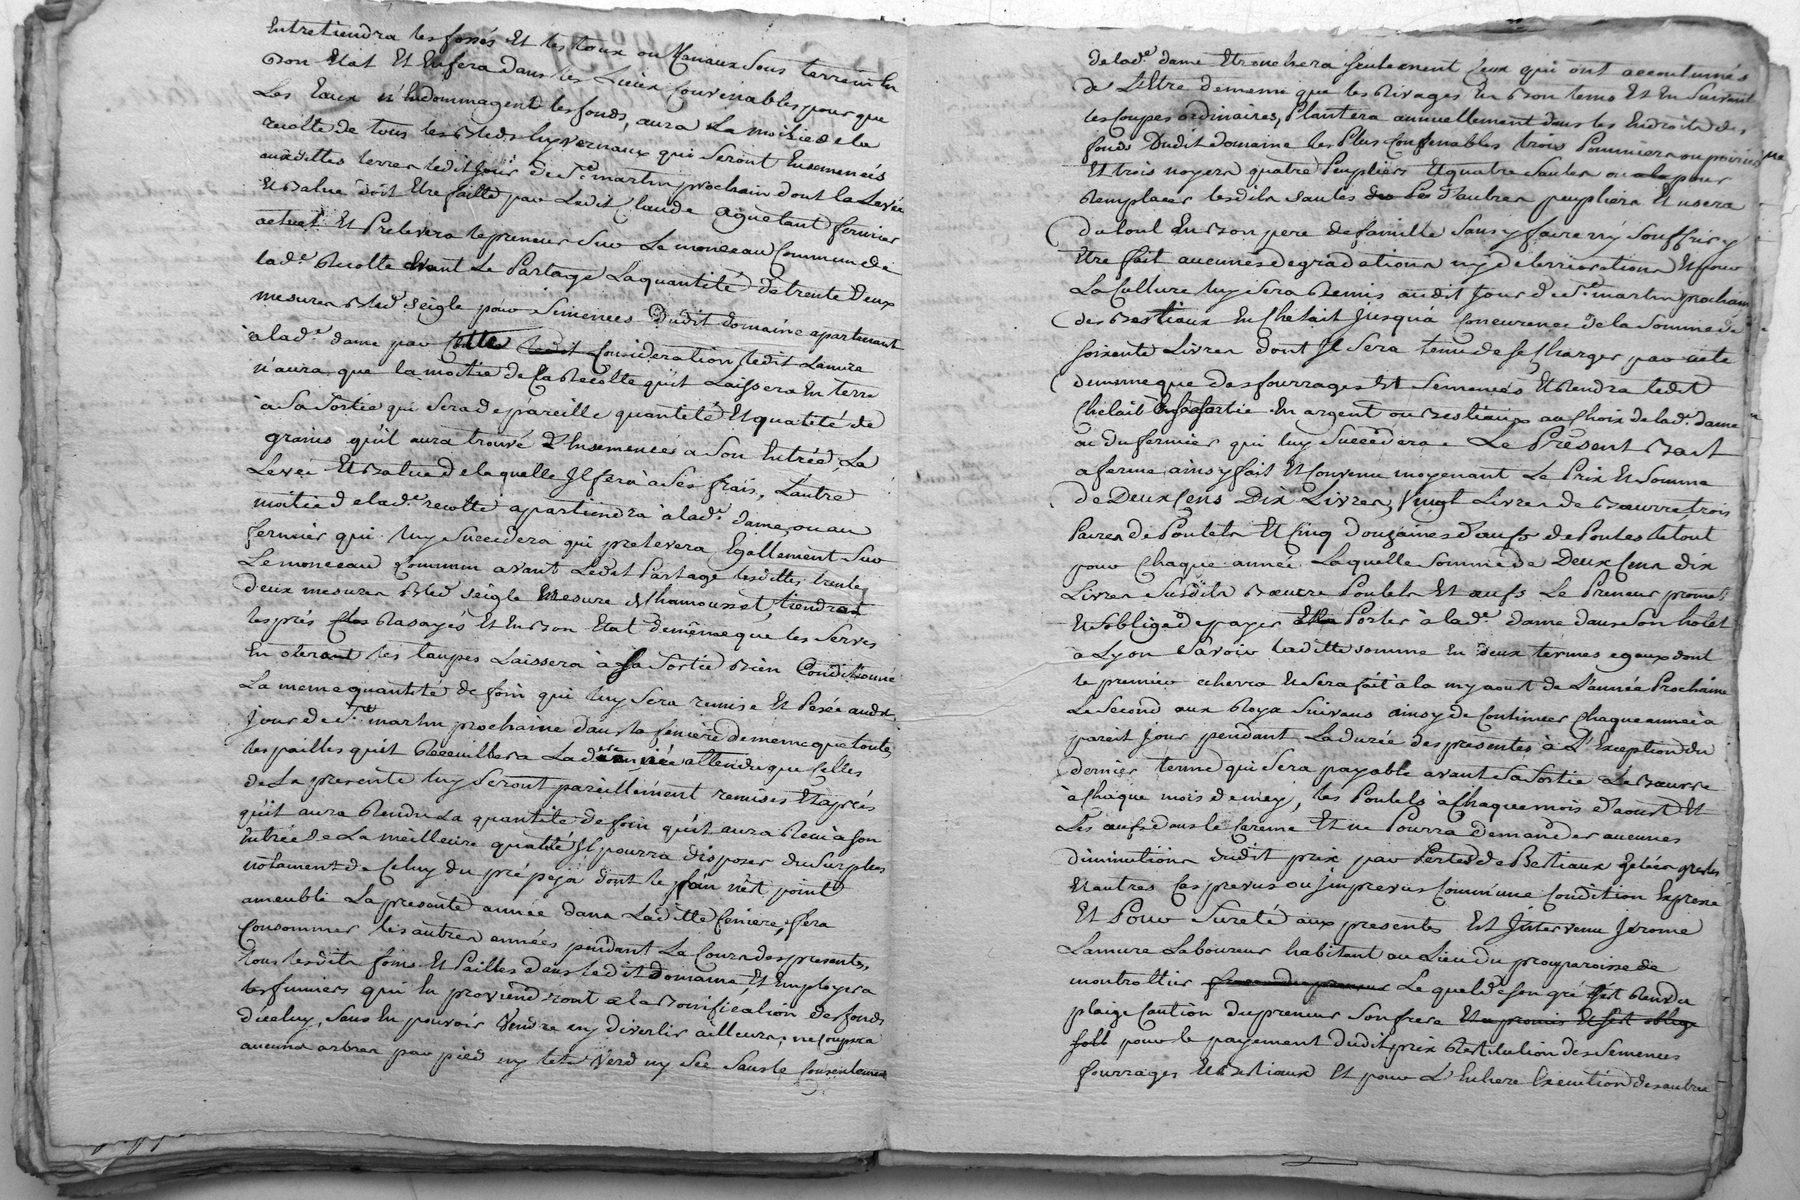 Entretiendra les fossés et les toux ou Canaux sous terrain en
Bon Etat Et en fera dans les Lieux Convenables pour que
Les Eaux n'endommagent les fonds, aura La moitié de la
recolte de tous les Bleds hyvernaux qui seront Ensemencés
auxdittes terres ledit Jour de St martin prochain dont la Levée
Et Balue doit Etre faitte par Ledit Claude Aguetant fermier
actuel Et Prelevera le preneur sur Le monceau Commun de
lade Recolte avant Le Partage La quantité de trente Deux
mesures Bled seigle pour Semences Dudit domaine apartenant
à lad.e dame par Cette Consideration ledit Lamure
n'aura que la moitié de la Recolte qu'il Laissera En terre
à Sa Sortie qui Sera de pareille quantité Et qualité de
grains qu'il aura trouvé d'Ensemencés a Son Entrée, La
Levée Et Balue de laquelle Il fera à Ses frais, Lautre
moitié de lad.e recolte apartiendra à lad.e dame ou au
fermier qui luy Succedera qui prelevera Egallement Sur
Le monceau Commun avant Ledit Partage lesdittes trente
deux mesures Bled seigle Mesure de Chamousset, tiendra
les prés Clos Rasayés Et En Bon Etat de même que les Serves
En oterant les taupes Laissera à Sa Sortie Bien Conditionné
La meme quantité de foin qui luy Sera remise Et Pesée audt
Jour de St martin prochaine dans la feniere de meme que toutes
les pailles qu'il Recuillera La derniere année attendu que Celles
de La presente luy Seront pareillement remises Et après
qu'il aura Rendu La quantité de foin qu'il aura Recu à Son
Entrée de La meilleure qualité Il pourra disposer du Surplus
notament de Celuy du pré pejà dont le foin n'est point
ameublé La presente année dans Laditte feniere, fera
Consommer les autres années pendant Le Cours des presentes,
tous lesdits foins Et Pailles dans ledit domaine, Et Employera
les fumiers qui En proviendront a la Bonification des fonds
diceluy, Sans En pouvoir Vendre ny divertir ailleurs; ne Coupera
aucuns arbres par pied ny tete Verd ny Sec Sans le Consentement
de lad.e dame Etronchera Seulement Ceux qui ont accoutumés
de L'Etre de meme que les Rivages En Bon tems Et En Suivant
les Coupes ordinaires, Plantera annuellement dans les Endroits des
fonds Dudit domaine les Plus Convenables trois Pommiers ou poiriers
Et trois noyers quatre Peupliers Et quatre Saules ou pour
Remplacer lesdits Saules d'autres peupliers Et usera
Du tout En Bon pere de famille Sans y faire ny Souffrir y
Etre fait aucunes degradations ny deterriorations Et pour
La Culture luy Sera Remis audit Jour de St martin prochain
des Bestiaux En Chetait Jusqu'à Concurrence de la Somme de
Soixente Livres dont Il Sera tenu de Se Charger par acte
de meme que des fourrages Et Semences Et Rendra ledit
Chetait à Sa Sortie En argent ou Bestiaux au Choix de lad.e dame
ou du fermier qui luy Succedera. Le Present Bail
a ferme ainsy fait Et Convenu moyenant Le Prix Et Somme
de Deux Cens Dix Livres, Vingt Livres de Beurre, trois
Paires de Poulets Et Cinq douzaines d'œufs de Poules le tout
pour Chaque année. Laquelle Somme de Deux Cens dix
Livres Susdits Beurre Poulets Et œufs Le Preneur promet
Et S'oblige de payer Et Porter à lad.e dame dans Son hotel
a Lyon Savoir laditte Somme En deux termes egaux dont
le premier echerra Et Sera fait à la my aout de L'année Prochaine
Le Second aux Roys Suivans ainsy de Continuer Chaque année à
pareil Jour pendant La durée des presentes à L'Exception du
dernier terme qui Sera payable avant Sa Sortie Le Beurre
à Chaque mois de may, les Poulets à Chaque mois d'aout Et
Les œufs dans le Careme Et ne Pourra demander aucunes
diminutions dudit prix par Pertes de Bestiaux Gelées gresles
Et autres Cas prevus ou Jmprevus Comm'une Condition Expresse
Et Pour Sureté aux presentes Est Jntervenu Jérome
Lamure Laboureur habitant au Lieu du prou paroisse de
montrottier Le quel de Son gré S'est Rendu
plaige Caution du preneur Son frere Et a promis Et S'est oblige
Soll pour le payement dudit prix Restitution des Semences
fourrages Et Bestiaux Et pour L'Entiere Execution des autres